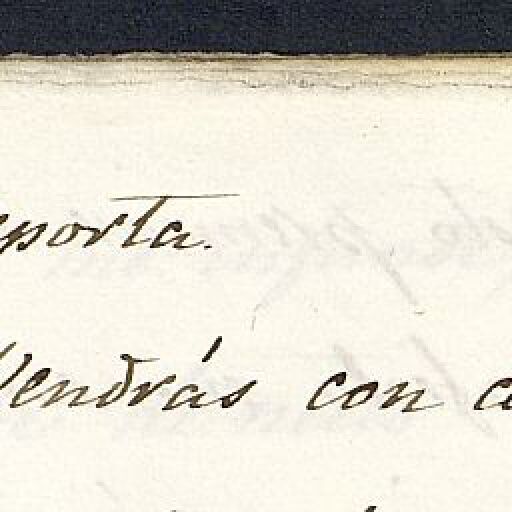 porta.
Vendrás con